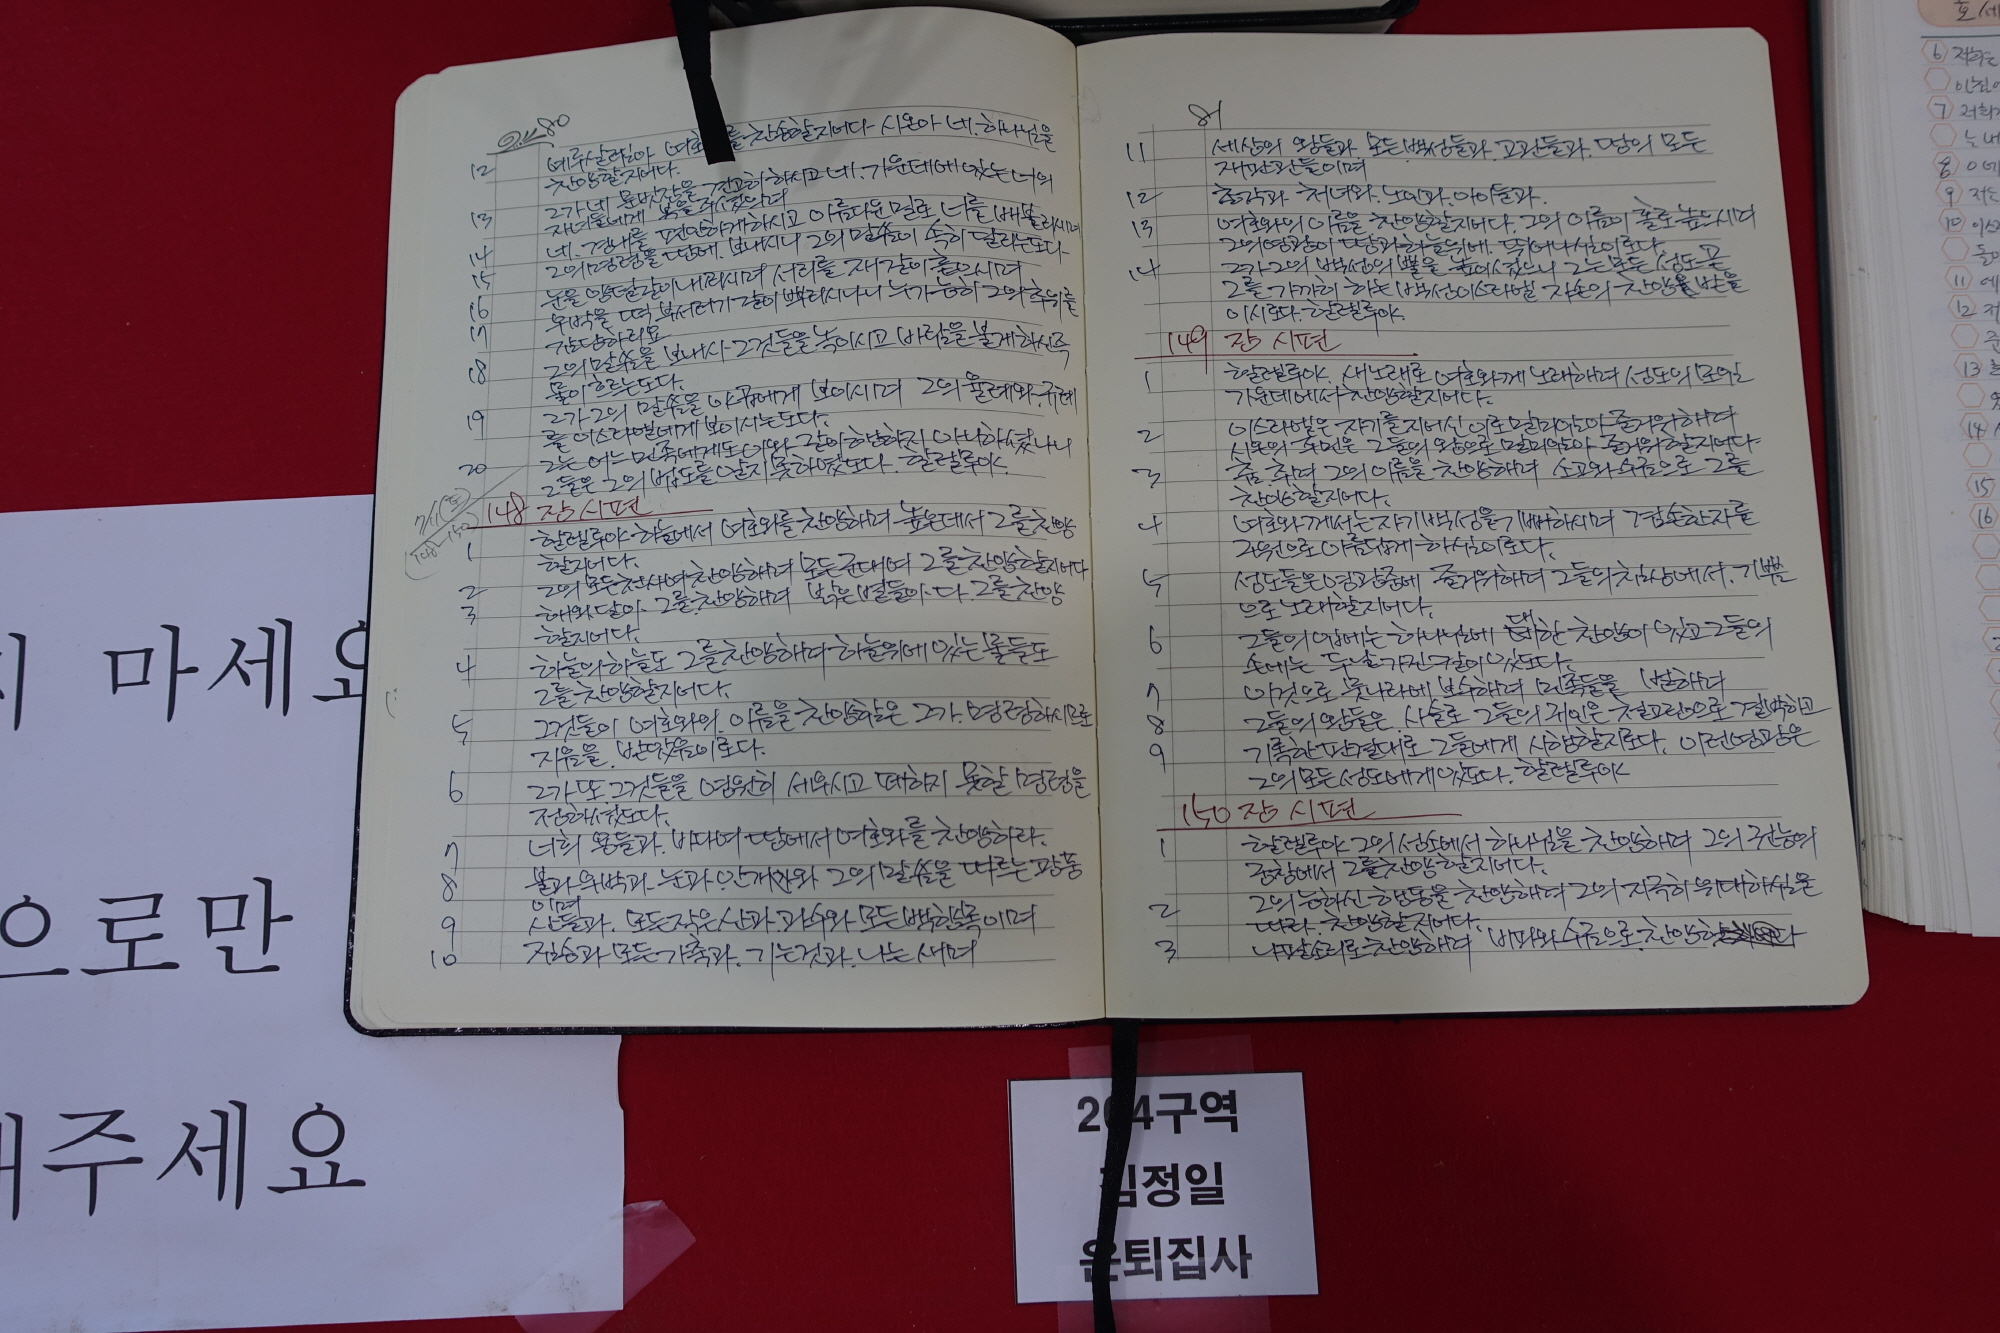 80
12 예루살렘아 여호 를 찬송할지어다 시온아 네 하나님을
찬양할지어다.
13 그가 네 문빗장을 견고히 하시고 네 가운데에 있는 너의
자녀들에게 복을 주셨으며
14 네 경내를 평안하게 하시고 아름다운 밀로 너를 배불리시며
15 그의 명령을 땅에 보내시니 그의 말씀이 속히 달리는도다
16 눈을 양털같이 내리시며 서리를 재같이 흩으시며
17 우박을 떡 부서러기 같이 뿌리시나니 누가 능히 그의 추위를
감당하리요
18 그의 말씀을 보내사 그것들을 녹이시고 바람을 불게 하신즉
물이 흐르는도다.
19 그가 그의 말씀을 야곱에게 보이시며 그의 율례와 규례
를 이스라엘에게 보이시는도다.
20 그는 어느 민족에게도 이와 같이 행하지 아니하셨나니
그들은 그의 법도를 알지 못하였도다. 할렐루야
148 장 시편
1 할렐루야 하늘에서 여호와를 찬양하며 높은데서 그를 찬양
할지어다.
2 그의 모든 천사여 찬양하며 모든 군대여 그를 찬양할지어다
3 해와 달아 그를 찬양하며 밝은 별들아 다 그를 찬양
할지어다.
4 하늘의 하늘도 그를 찬양하며 하늘위에 있는 물들도
그를 찬양할지어다.
5 그것들이 여호와의 이름을 찬양함은 그가 명령하시므로
지음을 받았음이로다.
6 그가 또 그것들을 영원히 세우시고 폐하지 못할 명령을
정하셨도다.
7 너희 용들과 바다여 땅에서 여호와를 찬양하라.
8 불과 우박과 눈과 안개와 그의 말씀을 따르는 광풍
이며
9 산들과 모든 작은 산과 과수와 모든 백향목이며
10 짐승과 모든 가축과 기는 것과 나는 새며
81
11 세상의 왕들과 모든 백성들과 고관들과 땅의 모든
재판관들이며
12 총각과 처녀와 노인과 아이들과
13 여호와의 이름을 찬양할지어다. 그의 이름이 홀로 높으시며
그의 영광이 땅과 하늘위에 뛰어나심이로다.
14 그가 그의 백성의 뿔을 높이셨으니 그는 모든 성도 곧
그를 가까이 하는 백성 이스라엘 자손의 찬양을 받을
이시로다. 할렐루야
149 장 시편
1 할렐루야 새노래로 여호와께 노래하며 성도의 모임
가운데에서 찬양할지어다.
2 이스라엘은 자기를 지으신 이로 말미암아 즐거워하며
시온의 주민은 그들의 왕으로 말미암아 즐거워할지어다
3 춤 추며 그의 이름을 찬양하며 소고와 수금으로 그를
찬양할지어다.
4 여호와께서는 자기 백성을 기뻐하시며 겸손한 자를
구원으로 아름답게 하심이로다.
5 성도들은 영광중에 즐거워하며 그들의 침상에서 기쁨
으로 노래할지어다.
6 그들의 입에는 하나님에 대한 찬양이 있고 그들의
손에는 두날 가진 칼이 있도다.
7 이것으로 뭇나라에 보수하며 민족들을 벌하며
8 그들의 왕들은 사슬로 그들의 귀인은 철고랑으로 결박하고
9 기록한 판결대로 그들에게 시행할지로다. 이런 영광은
그의 모든 성도에게 있도다. 할렐루야
150 장 시편
1 할렐루야 그의 성소에서 하나님을 찬양하며 그의 권능의
궁창에서 그를 찬양할지어다.
2 그의 능하신 행동을 찬양하며 그의 지극히 위대하심을
따라 찬양할지어다.
3 나팔소리로 찬양하며 비파와 수금으로 찬양할
지 마세요
으로만
해주세요
204구역
김정일
은퇴집사
6 저희는
7 저희가
8
9 저는
10
11
12
13
14
15
16